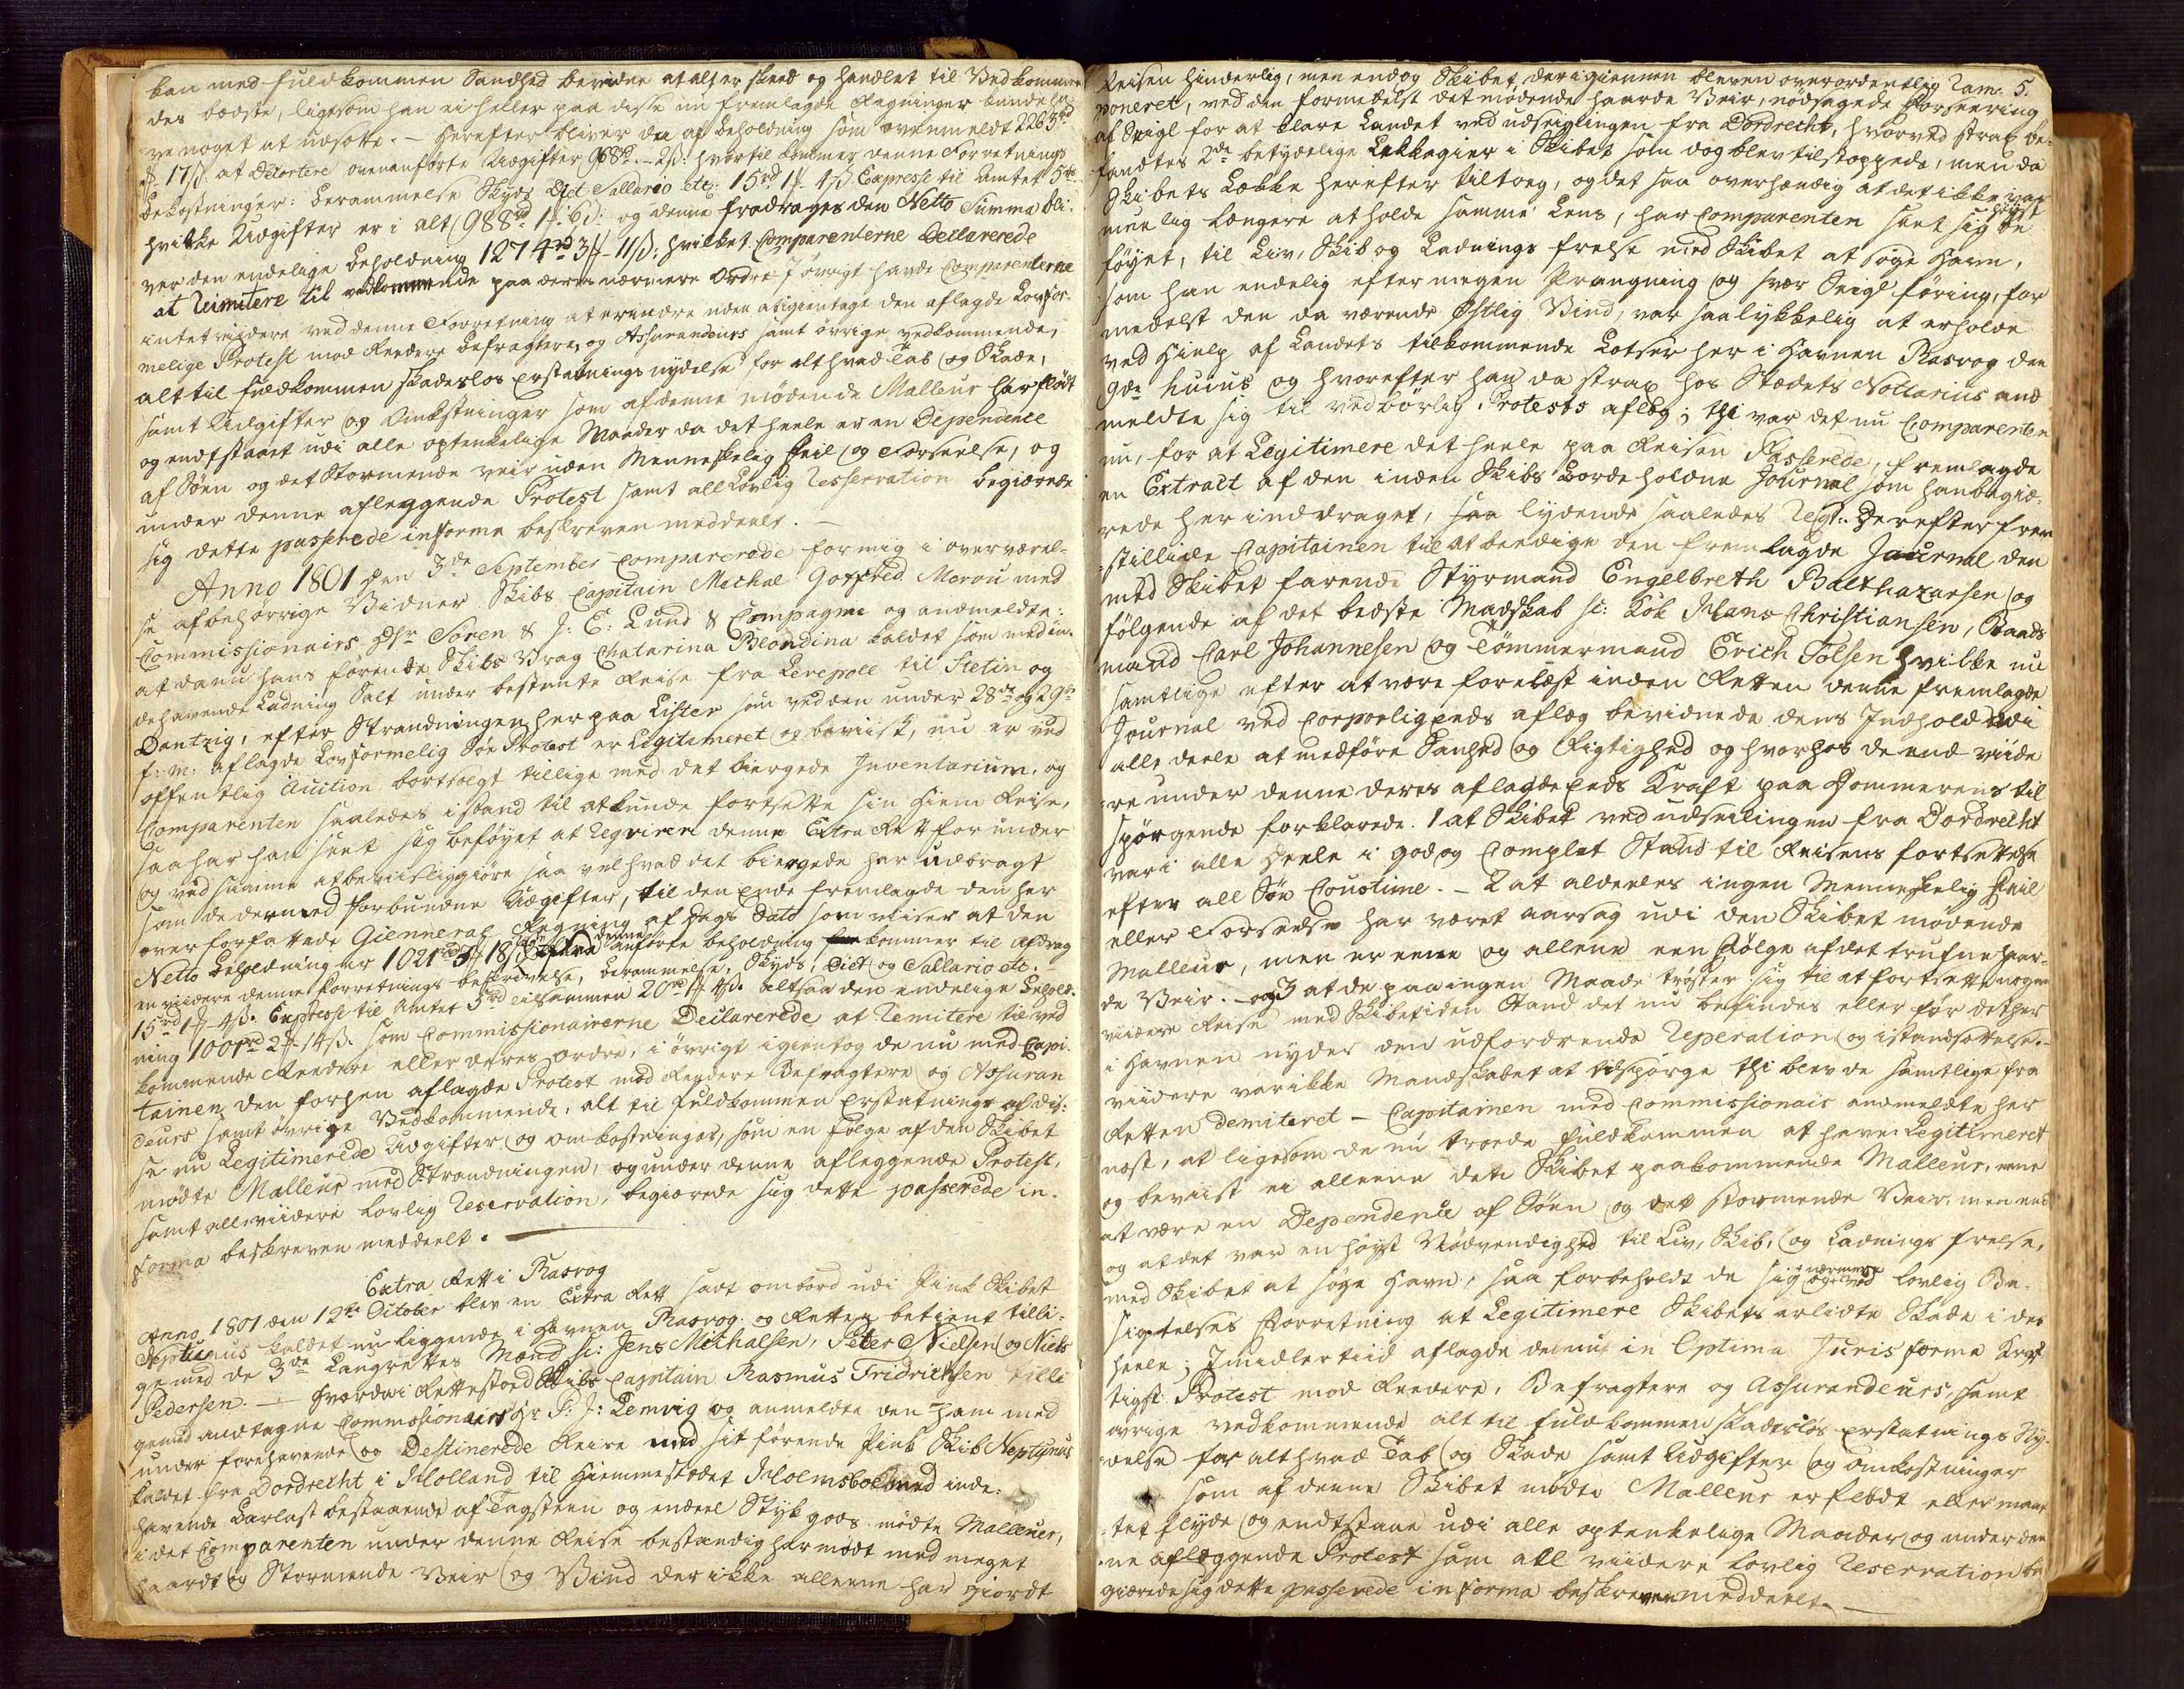 kan med fuldkommen Sandhed bevidne at alt er skeed og handlet til Vedkommen-
des bedste, ligesom han ei heller paa disse nu fremlagde Regninger kunde ha-
ve noget at udsætte. – Herefter bliver da af beholdning som ovenmeldt 2263rd
17ß. at decortere ovenanførte Udgifter 968rd – 2ß: hvortil kommer denne Forretnings
bekostninger: berammelse Skyds Diet Sallario etc: 15rd 1 4ß Expresse til Amtet 5rd
hvilke Udgifter er i alt 988rd 1 6ß: og denne fradrages den Netto Summa bli-
ver den endelige beholdning 1274rd 3 – 11ß: hvilket Comparenterne Declarerede
at Reimitere til vedkommende paa deres nærmere Ordre. J øvrigt havde Comparenterne
intet viidere ved denne Forretning at erindre uden at igientage den aflagde Lovfor-
melige Protest mod Reedere Befragtere, og Assurandeurs samt øvrige vedkommende,
alt til fuldkommen skadesløs Erstatnings nydelse for alt hvad Tab og Skade,
samt Udgifter og Omkostninger som af denne mødende Malleur har flødt
og endstaaet udi alle optenkelige Maader da det heele er en Dependence
af Søen og det Stormende veir uden Menneskelig Feil og Forseelse, og
under denne afleggende Protest samt all Lovlig Resservation begiærede
sig dette passerede in forma beskreven meddeelt. –
Anno 1801 den 3de September comparerede for mig i overværel-
se af behørrige Vidner Skibs Capitain Michal Gotfred Morou med
Commissionairs Hr Søren & J: E: Lund & Compagnie og anmeldte:
at da nu hans førende Skibs Vrag Chatarina Blondina kaldet som med in-
dehavende Ladning Salt under bestemte Reise fra Lerepoll til Stetin og
Dantzig, efter Strandningen her paa Lister som ved den under 28de og 29de
f: m: aflagde Lovformelig Søe Protest er Legitimeret og beviist, nu er ved
offentlig Auction bortsolgt tillige med det biergede Jnventarium, og
Comparenten saaledes istand til at kunde fortsette sin hiem Reise,
saa har han seet sig beføyet at Reqvirere denne Extra Rett for under
og ved samme at beviisliggiøre saa vel hvad det biergede har udbragt
som de dermed forbundne Udgifter, til den Ende fremlagde den her
over forfattede Giennerag Regning af Dags Dato som viiser at den
Netto beholdning er 1021rd 3 18ß denne anførte beholdning kommer til afdrag
en viidere denne Forretnings beskrivelse, berammelse, Skyds, Diet og Sallario etc. –
15rd 1 – 4ß. Expresse til Amtet 5rd tilsammen 20rd 1 4ß. altsaa den endelige behold-
ning 1001rd 2 – 14ß. som Commissionairerne Declarerede at Remitere til ved
kommende Reedere eller deres ordre, i øvrigt igientog de nu med Capi-
tainen den forhen aflagde Protest mod Reedere Befragtere og Assuran
deurs samt øvrige Vedkommende, alt til fuldkommen Erstatnings af dis-
se nu Legitimerede Udgifter og omkostninger, som en følge af den Skibet
mødte Malleur med Strandningen, og under denne afleggende Protest,
samt all viidere Lovlig Reservation, begiærede sig dette passerede in
forma beskreven meddeelt. –
Extra Rett i Rasvog
Anno 1801 den 12te October blev en Extra Rett sadt ombord udi Pink Skibet
Neptunus kaldet nu liggende i Havnen Rasvog og Retten betient tilli-
ge med de 3de Laugrettes Mænd sc: Jens Michalsen, Peter Nielsen og Niels
Pedersen. – hvordai Rettestoed Skibs Capitain Rasmus Fridrichsen tilli
gemed andtagne Commissionairs Hr P: J: Lemvig og anmeldte den ham med
under forehavende og Destinerede Reise med sit førende Pink Skib Neptunus
kaldet fra Dordrecht i Holland til Hiemmestædet Holmsboe med inde-
havende Barlast bestaaende af Tagsteen og endeel Stykgods mødte Malleur,
i det Comparenten under denne Reise bestændig har mødt med meget
haardt og Stormende Veir og Vind der ikke alleene har giordt
Reisen hinderlig, men endog Skibet derigiennem bleven overordentlig Ram- 5.
poneret, ved den formedelst det mødende haarde Veir, nødsagede Forseering
af Seigl for at klare Landet ved udseiglingen fra Dordrecht, hvorved strax be-
fandtes 2de betydelige Lekkagier i Skibet som dog blev tilstoppede, men da
Skibets Lække herefter tiltoeg, og det saa overhændig at det ikke var
muelig længere at holde samme Lens, har Comparenten seet sig høyst be
føyet, til Liv, Skib og Ladnings frelse med Skibet at søge Havn,
som han endelig efter megen Prangning og svær Seigl føring, for
medelst den da værende Østlig Vind, var saa lykkelig at erholde
ved Hielp af Landets tilkommende Lotser her i Havnen Rasvog den
9de huius og hvorefter han da strax hos Stædets Nottarius and
meldte sig til vedbørlig Protests aflæg; thi var det nu Comparenten
nu, for at Legitimere det heele paa Reisen Passerede, fremlagde
en Extract af den inden Skibs Borde holdne Journal som han begiæ-
rede her inddraget, saa lydende saaledes Regt: Derefter frem
stillede Capitainen til at beedige den fremlagde Journal den
med Skibet farende Styrmand Engelbreth Balthazarsen og
følgende af det bedste Madskab sc: Kok Hans Christiansen, Baads
mand Carl Johannesen og Tømmermand Erich Tolsen hvilke nu
samtlige efter at være forelæst inden Retten denne fremlagde
Journal ved Corporlig Eeds aflæg bevidnede dens Jndhold udi
alle deele at medføre Sanhed og Rigtighed og hvorhos de end viide
re under denne deres aflagde Eeds Kraft paa Dommerens til
spørgende forklarede. 1 at Skibet ved udseilingen fra Dordrecht
var i alle Deele i god og Complet Stand til Reisens fortsettelse
efter all Søe Coustime. – 2 at aldeeles ingen Menneskelig Feil
eller Forseelse har været aarsag udi den Skibet mødende
Malleur, men er eene og alleene een Følge af det trufne haar-
de Veir. – og 3 at de paa ingen Maade trøster sig til at fortsette nogen
viidere Reise med Skibet i den Stand det nu befindes eller før det her
i Havnen nyder den udfordrende Reperation og istandsettelse. –
viidere var ikke Mandskabet at tilspørge thi blev de samtlige fra
Retten demiteret – Capitainen med Commissionair anmeldte her
næst, at ligesom de nu troede fuldkommen at have Legitimeret
og beviist ei alleene dete Skibet paakommende Malleur, eene
at være en Dependence af Søen og det stormende Veir, men end
og at det var en høyst Nødvendighed til Liv, Skib, og Ladnings frelse,
med Skibet at søge Havn, saa forbeholdt de sig i nærmere og ved lovlig Be-
sigtelses Forretning at Legitimere Skibets erlidte Skade i det
heele; Jmidlertiid aflagde de nu in Optima Juris forma kraf
tigst Protest mod Reedere, Befragtere og Assurandeurs, samt
øvrige vedkommende alt til fuldkommen skadesløs Erstatnings Ny-
delse for alt hvad Tab og Skade samt Udgifter og omkostninger
som af denne Skibet mødte Malleur er flødt eller maat
tet flyde og endtstaae udi alle optenkelige Maader og under den
ne aflæggende Protest sam all viidere Lovlig Reservation be
giærede sig dette passerede in forma beskreven meddeelt. –